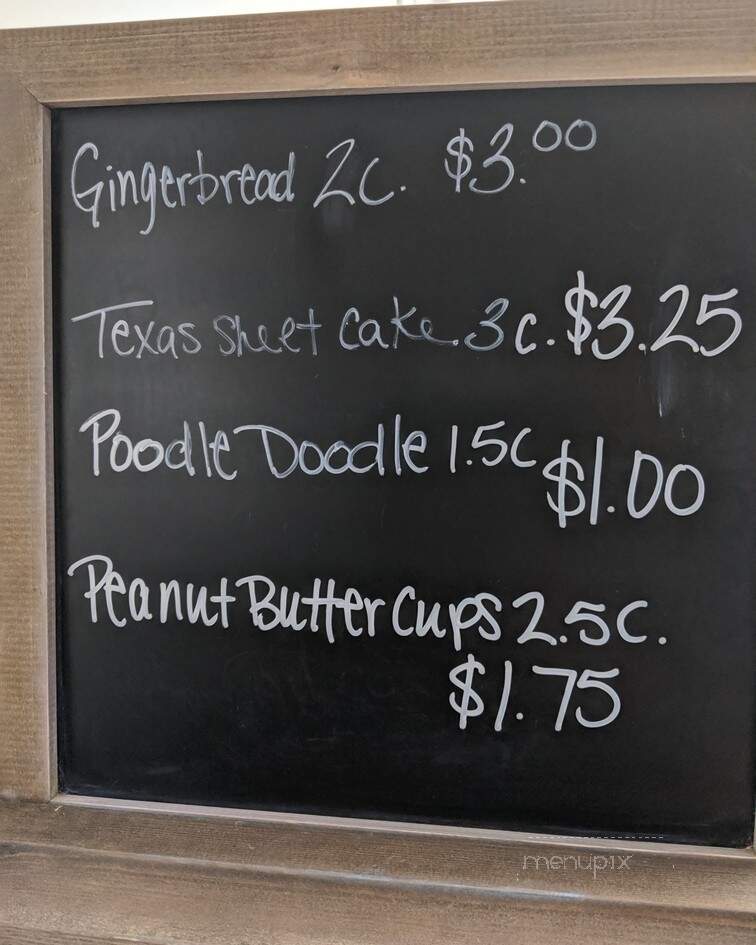 Gingerbread 2c. $3.00
Texas Sheet Cake 3c. $3.25
Poodle Doodle 1.5C $1.00
Peanut Butter Cups 2.5C.
$1.75
menupix